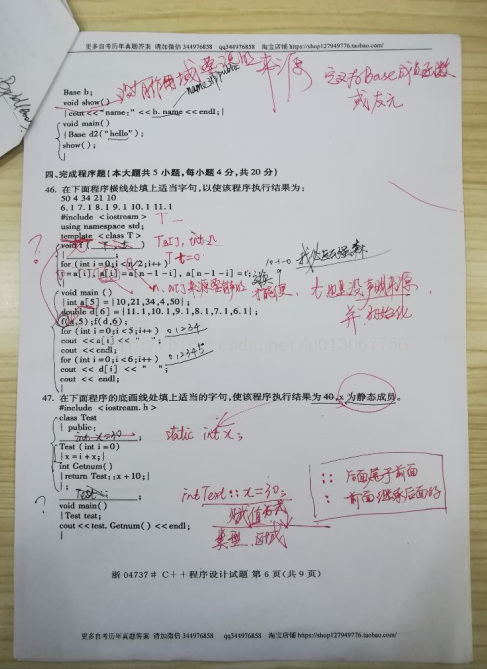 更多自考历年真题答案 请加微信344976858 qq344976858 淘宝店铺 https://shop127949776.taobao.com/
Base b;
void show() 没有作用域 要说明 来源
定义为Base成员函数
或友元
{cout <<"name:" <<b. name <<endl;}
name为public
void main()
{Base d2("hello");
show();
}
四、完成程序题(本大题共5小题,每小题4分,共20分)
46. 在下面程序横线处填上适当字句,以使该程序执行结果为:
50 4 34 21 10
6.1 7.1 8.1 9.1 10.1 11.1
#include <iostream>
using namespace std;
template <class T>
void f( ) T a[], int n
{
for (int i=0;i<n/2;i++) t=0;
t=a[i], a[i]=a[n-1-i], a[n-1-i]=t;
}
void main()
{int a[5] = {10,21,34,4,50};
double d[6] = {11.1,10.1,9.1,8.1,7.1,6.1};
f(a,5);f(d,6);
for (int i=0;i<5;i++) 01234
cout <<a[i] << " ";
cout <<endl;
for (int i=0;i<6;i++) 012345
cout << d[i] << " ";
cout << endl;
}
47. 在下面程序的底画线处填上适当的字句,使该程序执行结果为40,x为静态成员。
#include <iostream. h>
class Test
{ public:
int x=30 ; static int x;
Test (int i=0)
{x=i+x;}
int Getnum()
{return Test::x+10;}
};
Test ; int Test::x=30;
赋值方式
类型 区域
:: 后面属于前面
: 前面继承后面的
void main()
{Test test;
cout <<test. Getnum() <<endl;
}
浙04737# C++程序设计试题 第6页(共9页)
更多自考历年真题答案 请加微信344976858 qq344976858 淘宝店铺 https://shop127949776.taobao.com/